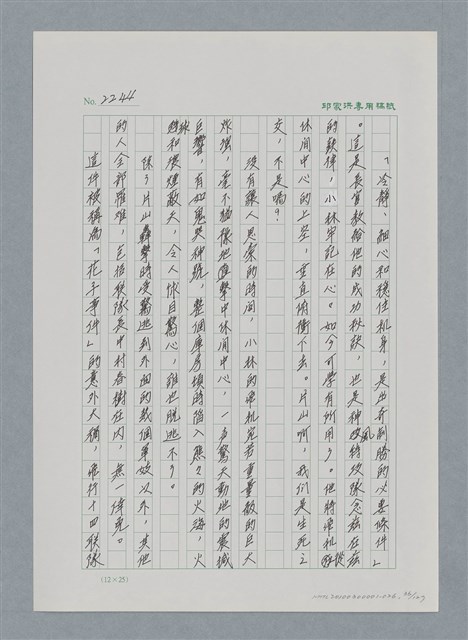 No. 2244
邱家洪專用稿紙
「冷靜、細心和穩住機身，是出奇制勝的必要條件」
。這是長官教給他的成功秘訣，也是神風特攻隊念茲在茲
的鉄律，小林牢記在心。如今可學有所用了。他將座机從
休閒中心的上空，垂直俯衝下去。片山啊，我們是生死之
交，不是嗎？
沒有讓人思索的時間，小林的座机宛若重量級的巨大
炸彈，毫不猶豫地直擊中休閒中心，一声驚天動地的震撼
巨響，有如鬼哭神號，整個庫房頓時陷入熊熊的火海，火
球和濃煙蔽天，令人怵目驚心，誰也脫逃不了。
除了片山轟擊時受驚逃到外面的幾個軍妓以外，其他
的人全部罹難，包括聯隊長中村春樹在內，無一倖免。
這件被稱為「花子事件」的意外大禍，飛行十四聯隊
(12×25)